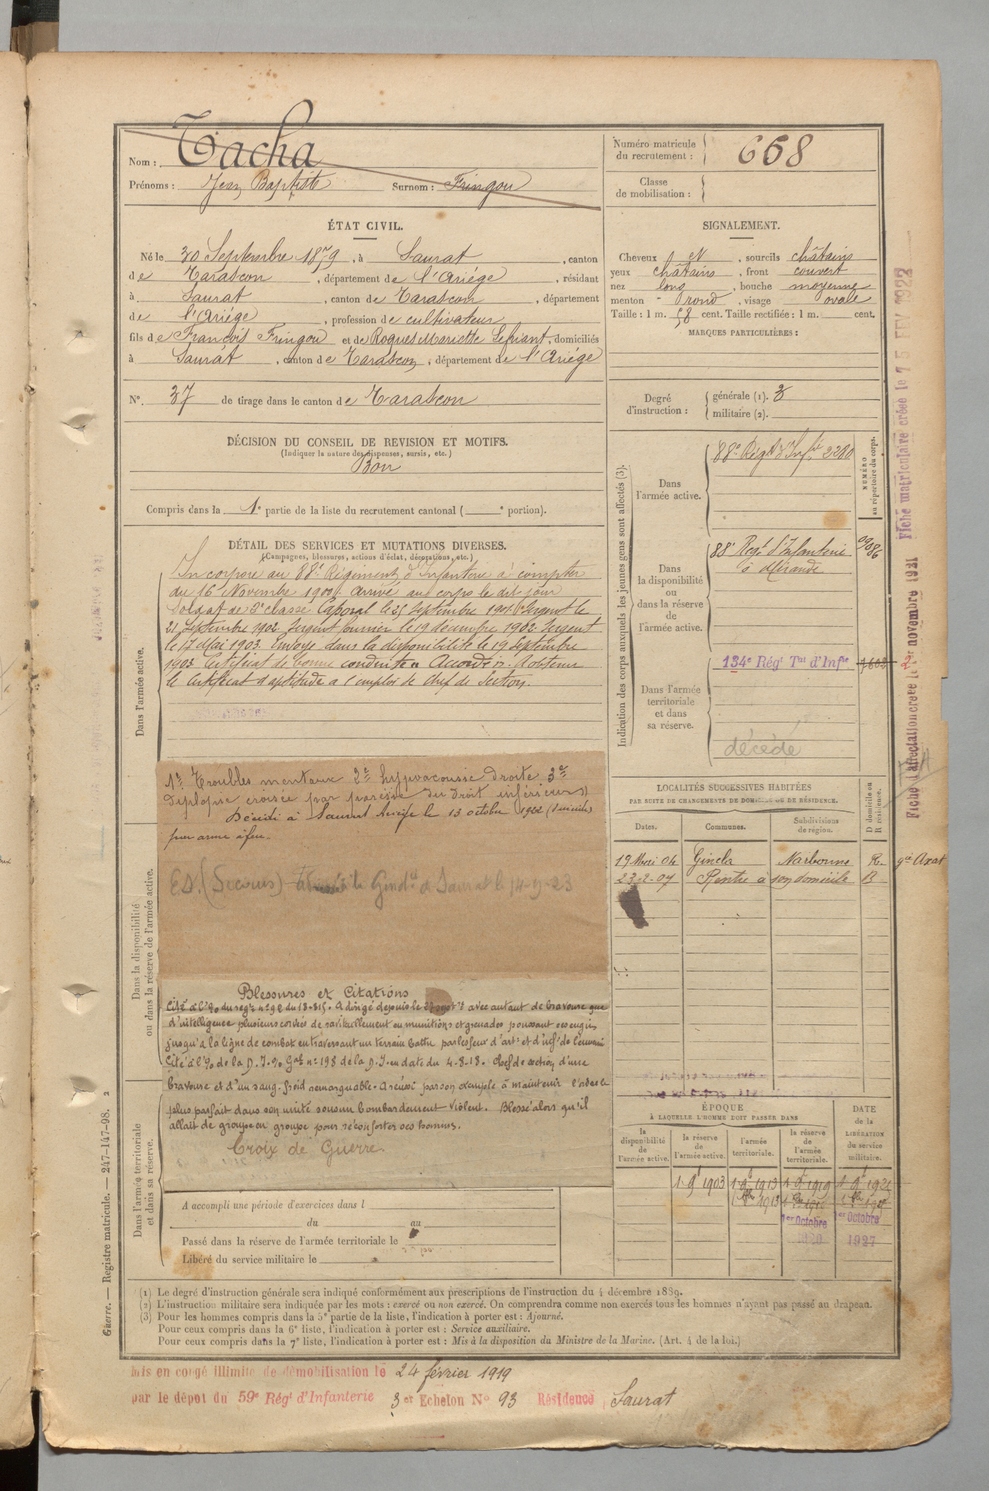 Nom : Tacha
Prénoms : Jean Baptiste Surnom : Fringou
Numéro matricule du recrutement : 668
Classe de mobilisation :
ÉTAT CIVIL.
Né le 30 Septembre 1879, à Saurat, canton
de Tarascon, département de l'Ariége, résidant
à Saurat, canton de Tarascon, département
de l'Ariége, profession de cultivateur
fils de François Fringou et de Roques Mariette, domiciliés
à Saurat, canton de Tarascon, département de l'Ariége
N°. 37 de tirage dans le canton de Tarascon
DÉCISION DU CONSEIL DE REVISION ET MOTIFS.
(Indiquer la nature des dispenses, sursis, etc.)
Bon
Compris dans la 1e partie de la liste du recrutement cantonal ( e portion).
SIGNALEMENT.
Cheveux et, sourcils châtains
yeux châtains, front couvert
nez long, bouche moyenne
menton rond, visage ovale
Taille : 1 m. 58 cent. Taille rectifiée : 1 m. cent.
MARQUES PARTICULIÈRES :
Degré d'instruction : générale (1). 3
militaire (2).
DÉTAIL DES SERVICES ET MUTATIONS DIVERSES.
(Campagnes, blessures, actions d'éclat, décorations, etc.)
Dans l'armée active.
Incorporé au 88e Régiment d'Infanterie à compter
du 16 Novembre 1900. Arrivé au corps le dit jour
Soldat de 2e classe Caporal le 25 Septembre 1901. Sergent le
21 Septembre 1902 Sergent fourrier le 19 décembre 1902 Sergent
le 17 Mai 1903. Envoyé dans la disponibilité le 19 septembre
1903 Certificat de bonne conduite Accordé. A obtenu
le certificat d'aptitude à l'emploi de Chef de Section.
1° Troubles mentaux 2° hypoacousie droite 3°
Diplopie croisée par parésie du droit inférieur
Décédé à Saurat Ariège le 13 octobre 1922 (suicide)
par arme à feu.
ED. (Secours) à Saurat le 14-9-23
Dans la disponibilité ou dans la réserve de l'armée active.
Blessures et Citations
Cité à l'% du régt n° 92 du 13-8-15. A dirigé depuis le avec autant de bravoure que
d'intelligence plusieurs corvées de ravitaillement en munitions et grenades poussant ses engins
jusqu'à la ligne de combat en traversant un terrain battu par les feux d'arte et d'infie de l'ennemi
Cité à l'% de la D.I. % Gal n° 198 de la D.I. en date du 4-8-18. Chef de section d'une
bravoure et d'un sang-froid remarquable. A réussi par son exemple à maintenir l'ordre le
plus parfait dans son unité sous un bombardement violent. Blessé alors qu'il
allait de groupe en groupe pour réconforter ses hommes.
Croix de Guerre
Dans l'armée territoriale et dans sa réserve.
A accompli une période d'exercices dans l
du au
Passé dans la réserve de l'armée territoriale le
Libéré du service militaire le
Indication des corps auxquels les jeunes gens sont affectés (3).
NUMÉRO au répertoire du corps.
Dans l'armée active.
88e Régt d'Infie 2280
Dans la disponibilité ou dans la réserve de l'armée active.
88e Régt d'Infanterie
à Mirande
Dans l'armée territoriale et dans sa réserve.
134e Régt Tal d'Infie
décédé
LOCALITÉS SUCCESSIVES HABITÉES
PAR SUITE DE CHANGEMENTS DE DOMICILE OU DE RÉSIDENCE.
Dates. Communes. Subdivisions de région. D domicile ou R résidence.
19 Mai 04 Gincla Narbonne R. gie Axat
23-2-07 Rentre à son domicile
ÉPOQUE
À LAQUELLE L'HOMME DOIT PASSER DANS
DATE de la LIBÉRATION du service militaire.
la disponibilité de l'armée active. la réserve de l'armée active. l'armée territoriale. la réserve de l'armée territoriale.
1 9 1903
1er Octobre 1er Octobre 1927
Fiche matriculaire créée le
Fiche d'affectation créée le 1er novembre 1921
Guerre. — Registre matricule. — 247-147-98.
(1) Le degré d'instruction générale sera indiqué conformément aux prescriptions de l'instruction du 4 décembre 1889.
(2) L'instruction militaire sera indiquée par les mots : exercé ou non exercé. On comprendra comme non exercés tous les hommes n'ayant pas passé au drapeau.
(3) Pour les hommes compris dans la 5e partie de la liste, l'indication à porter est : Ajourné.
Pour ceux compris dans la 6e liste, l'indication à porter est : Service auxiliaire.
Pour ceux compris dans la 7e liste, l'indication à porter est : Mis à la disposition du Ministre de la Marine. (Art. 4 de la loi.)
Mis en congé illimité de démobilisation le 24 février 1919
par le dépôt du 59e Régt d'Infanterie 3e Echelon N° 93 Résidence Saurat